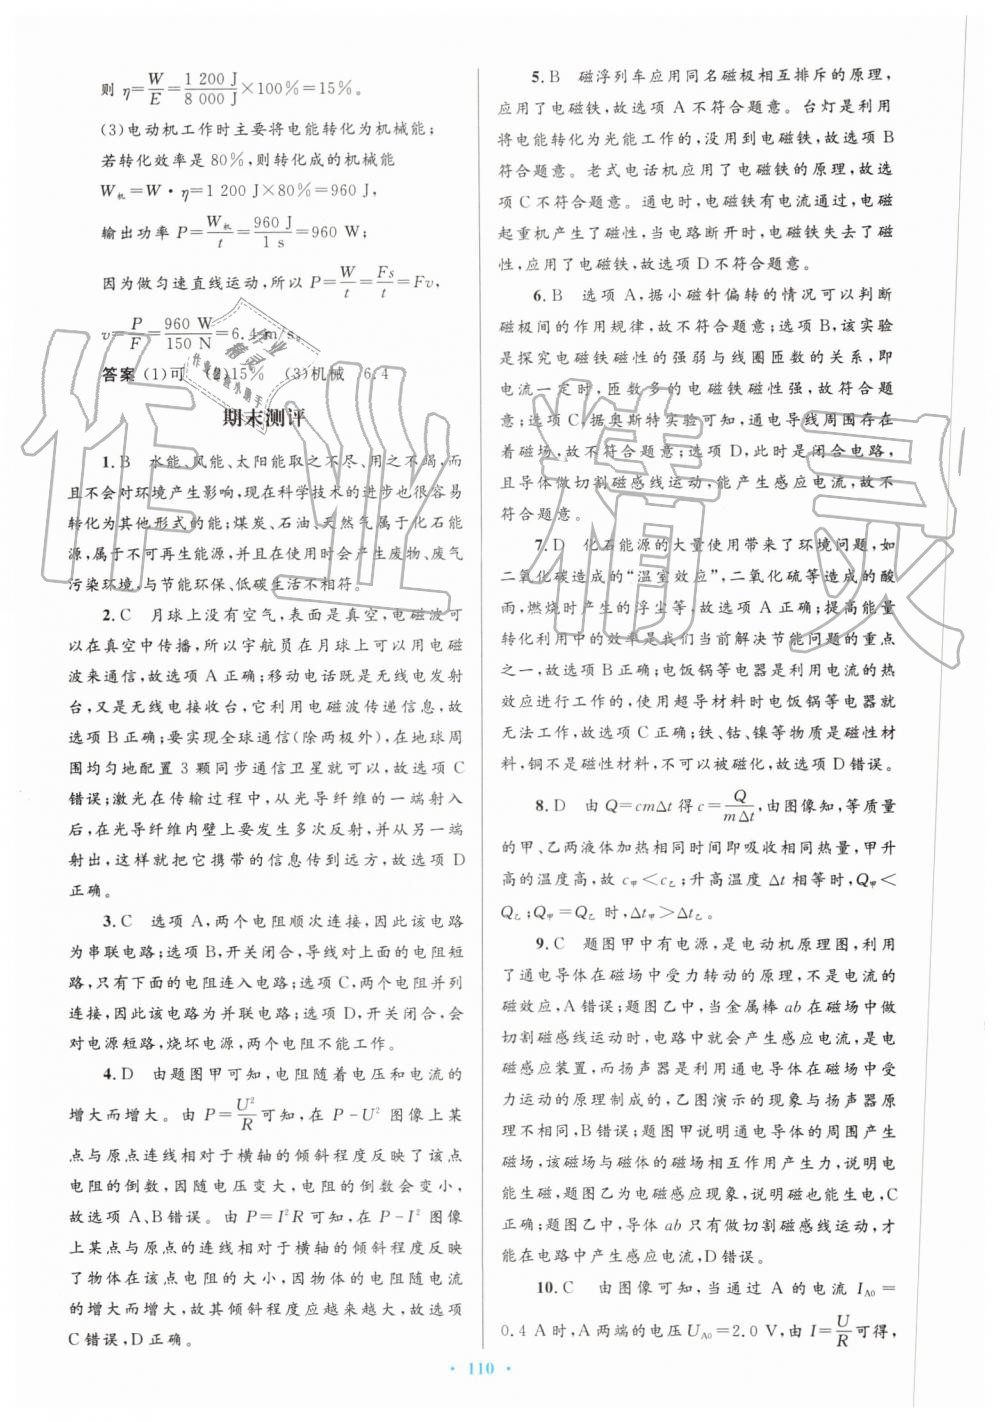 则 η=W/E=1 200 J/8 000 J×100%=15%。
(3)电动机工作时主要将电能转化为机械能;
若转化效率是 80%,则转化成的机械能
W机=W·η=1 200 J×80%=960 J,
输出功率 P=W机/t=960 J/1 s=960 W;
因为做匀速直线运动,所以 P=W/t=Fs/t=Fv,
v=P/F=960 W/150 N=6.4 m/s。
答案 (1)可 (2)15% (3)机械 6.4
期末测评
1.B 水能、风能、太阳能取之不尽、用之不竭,而
且不会对环境产生影响,现在科学技术的进步也很容易
转化为其他形式的能;煤炭、石油、天然气属于化石能
源,属于不可再生能源,并且在使用时会产生废物、废气
污染环境,与节能环保、低碳生活不相符。
2.C 月球上没有空气,表面是真空,电磁波可
以在真空中传播,所以宇航员在月球上可以用电磁
波来通信,故选项 A 正确;移动电话既是无线电发射
台,又是无线电接收台,它利用电磁波传递信息,故
选项 B 正确;要实现全球通信(除两极外),在地球周
围均匀地配置 3 颗同步通信卫星就可以,故选项 C
错误;激光在传输过程中,从光导纤维的一端射入
后,在光导纤维内壁上要发生多次反射,并从另一端
射出,这样就把它携带的信息传到远方,故选项 D
正确。
3.C 选项 A,两个电阻顺次连接,因此该电路
为串联电路;选项 B,开关闭合,导线对下面的电阻短
路,只有上面的电阻连入电路;选项 C,两个电阻并列
连接,因此该电路为并联电路;选项 D,开关闭合,会
对电源短路,烧坏电源,两个电阻不能工作。
4.D 由题图甲可知,电阻随着电压和电流的
增大而增大。由 P=U²/R 可知,在 P-U² 图像上某
点与原点连线相对于横轴的倾斜程度反映了该点
电阻的倒数,因随电压变大,电阻的倒数会变小,
故选项 A、B 错误。由 P=I²R 可知,在 P-I² 图像
上某点与原点的连线相对于横轴的倾斜程度反映
了物体在该点电阻的大小,因物体的电阻随电流
的增大而增大,故其倾斜程度应越来越大,故选项
C 错误,D 正确。
5.B 磁浮列车应用同名磁极相互排斥的原理,
应用了电磁铁,故选项 A 不符合题意。台灯是利用
将电能转化为光能工作的,没用到电磁铁,故选项 B
符合题意。老式电话机应用了电磁铁的原理,故选
项 C 不符合题意。通电时,电磁铁有电流通过,电磁
起重机产生了磁性,当电路断开时,电磁铁失去了磁
性,应用了电磁铁,故选项 D 不符合题意。
6.B 选项 A,据小磁针偏转的情况可以判断
磁极间的作用规律,故不符合题意;选项 B,该实验
是探究电磁铁磁性的强弱与线圈匝数的关系,即
电流一定时,匝数多的电磁铁磁性强,故符合题
意;选项 C,据奥斯特实验可知,通电导线周围存在
着磁场,故不符合题意;选项 D,此时是闭合电路,
且导体做切割磁感线运动,能产生感应电流,故不
符合题意。
7.D 化石能源的大量使用带来了环境问题,如
二氧化碳造成的“温室效应”,二氧化硫等造成的酸
雨,燃烧时产生的浮尘等,故选项 A 正确;提高能量
转化利用中的效率是我们当前解决节能问题的重点
之一,故选项 B 正确;电饭锅等电器是利用电流的热
效应进行工作的,使用超导材料时电饭锅等电器就
无法工作,故选项 C 正确;铁、钴、镍等物质是磁性材
料,铜不是磁性材料,不可以被磁化,故选项 D 错误。
8.D 由 Q=cmΔt 得 c=Q/mΔt,由图像知,等质量
的甲、乙两液体加热相同时间即吸收相同热量,甲升
高的温度高,故 c甲<c乙;升高温度 Δt 相等时,Q甲<
Q乙;Q甲=Q乙 时,Δt甲>Δt乙。
9.C 题图甲中有电源,是电动机原理图,利用
了通电导体在磁场中受力转动的原理,不是电流的
磁效应,A 错误;题图乙中,当金属棒 ab 在磁场中做
切割磁感线运动时,电路中就会产生感应电流,是电
磁感应装置,而扬声器是利用通电导体在磁场中受
力运动的原理制成的,乙图演示的现象与扬声器原
理不相同,B 错误;题图甲说明通电导体的周围产生
磁场,该磁场与磁体的磁场相互作用产生力,说明电
能生磁,题图乙为电磁感应现象,说明磁也能生电,C
正确;题图乙中,导体 ab 只有做切割磁感线运动,才
能在电路中产生感应电流,D 错误。
10.C 由图像可知,当通过 A 的电流 IA0=
0.4 A 时,A 两端的电压 UA0=2.0 V,由 I=U/R 可得,
· 110 ·
作业精灵